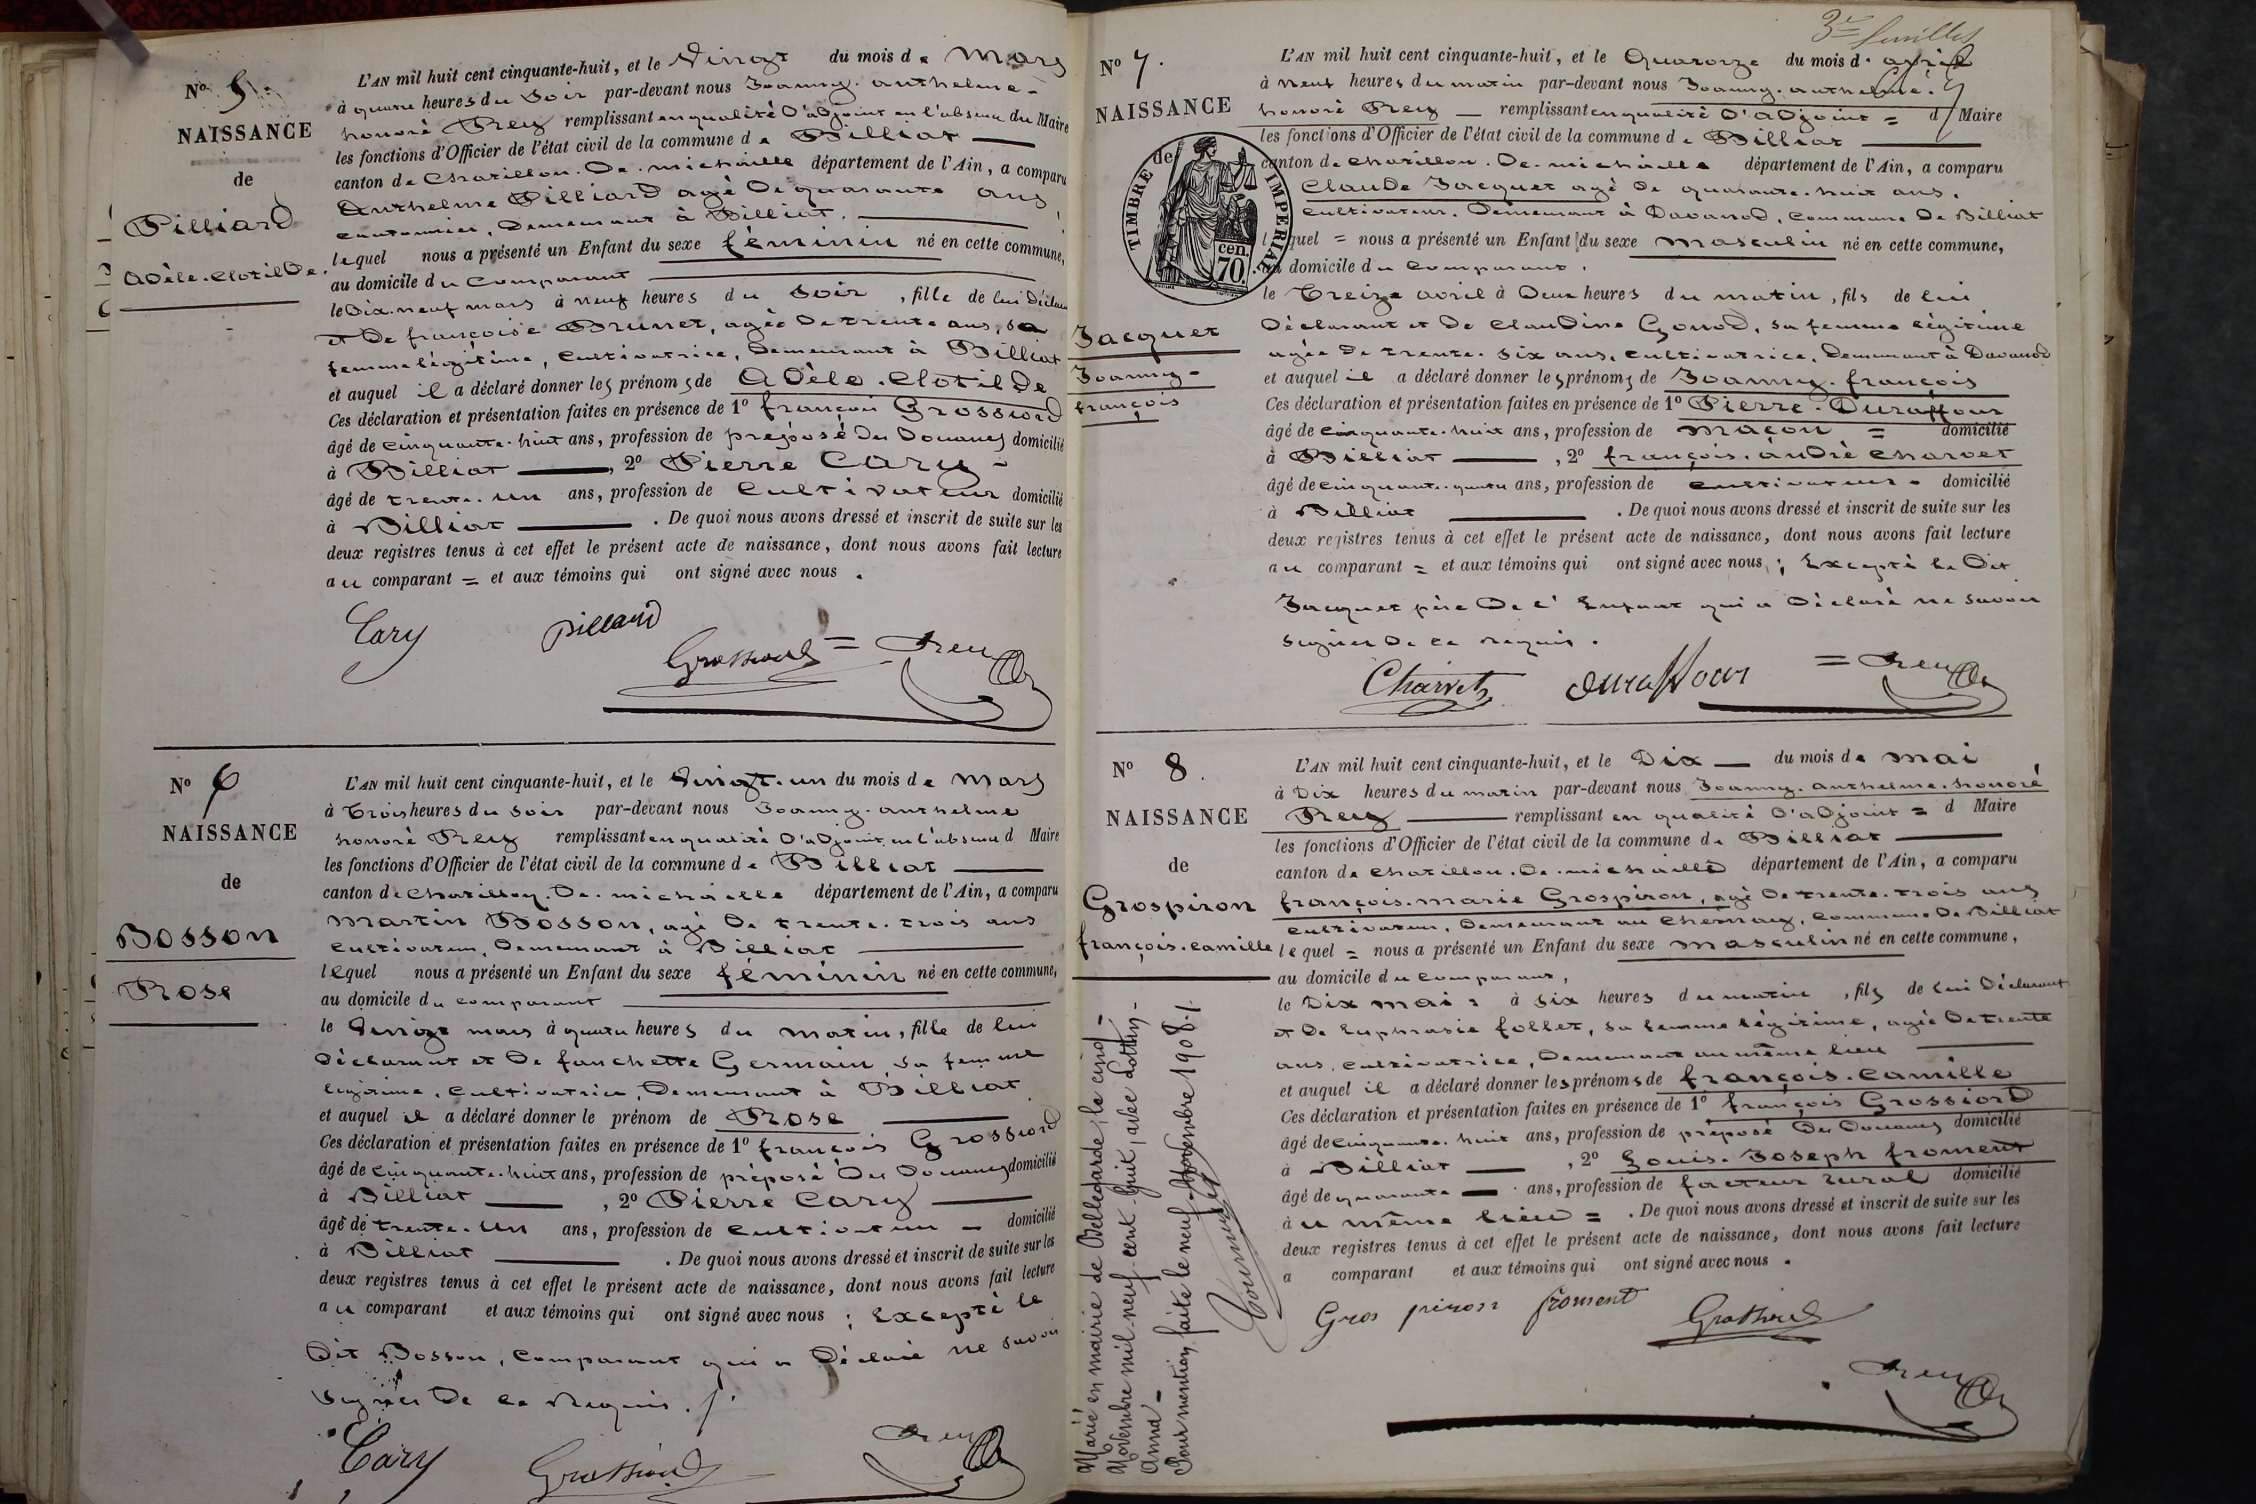 N° 5.
NAISSANCE
de
Pilliard
Adèle-Clotilde.
L'AN mil huit cent cinquante-huit, et le Vingt du mois de Mars
à quatre heures du Soir par-devant nous Joanny. anthelme-
honoré Rey remplissant en qualité d'adjoint en l'absence du Maire
les fonctions d'Officier de l'état civil de la commune de Billiat
canton de Chatillon. De. michaille département de l'Ain, a comparu
Anthelme Pilliard agé de quarante ans,
cantonnier, demeurant à Billiat.
lequel nous a présenté un Enfant du sexe féminin né en cette commune,
au domicile du comparant
le Dix-neuf mars à neuf heures du Soir, fille de lui déclarant
et De françoise Brunet, agée de trente ans, sa
femme légitime, cultivatrice, demeurant à Billiat
et auquel il a déclaré donner les prénoms de Adèle. Clotilde
Ces déclaration et présentation faites en présence de 1° françois Grossiord
âgé de cinquante-huit ans, profession de preposé des Douanes domicilié
à Billiat, 2° Pierre Cary-
âgé de trente-un ans, profession de cultivateur domicilié
à Billiat. De quoi nous avons dressé et inscrit de suite sur les
deux registres tenus à cet effet le présent acte de naissance, dont nous avons fait lecture
au comparant = et aux témoins qui ont signé avec nous.
Cary pilliard
Grossiord = Rey
N° 6
NAISSANCE
de
Bosson
Rose
L'AN mil huit cent cinquante-huit, et le Vingt-un du mois de Mars
à Trois heures du Soir par-devant nous Joanny. anthelme
honoré Rey remplissant en qualité d'adjoint en l'absence d Maire
les fonctions d'Officier de l'état civil de la commune de Billiat
canton de Chatillon. De. michaille département de l'Ain, a comparu
Martin Bosson, agé de trente-trois ans
cultivateur, demeurant à Billiat
lequel nous a présenté un Enfant du sexe féminin né en cette commune,
au domicile du comparant
le Vingt mars à quatre heures du matin, fille de lui
déclarant et De fanchette Germain, sa femme
légitime, cultivatrice, Demeurant à Billiat
et auquel il a déclaré donner le prénom de Rose
Ces déclaration et présentation faites en présence de 1° françois Grossiord
âgé de cinquante-huit ans, profession de préposé Des Douanes domicilié
à Billiat, 2° Pierre Cary
âgé de trente-un ans, profession de cultivateur - domicilié
à Billiat. De quoi nous avons dressé et inscrit de suite sur les
deux registres tenus à cet effet le présent acte de naissance, dont nous avons fait lecture
au comparant et aux témoins qui ont signé avec nous; Excepté le
Dit Bosson, comparant qui a Déclaré ne savoir
signer De ce Requis.
Cary Grossiord Rey
3e feuillet
N° 7.
NAISSANCE
de
TIMBRE IMPERIAL
cen. 70.
Jacquet
Joanny-
françois
L'AN mil huit cent cinquante-huit, et le Quatorze du mois d'avril
à neuf heures du matin par-devant nous Joanny. anthelme.
honoré Rey - remplissant en qualité d'adjoint = d Maire
les fonctions d'Officier de l'état civil de la commune de Billiat
canton de chatillon. De. michaille département de l'Ain, a comparu
Claude Jacquet agé de quarante-huit ans,
cultivateur, Demeurant à Davanod, commune De Billiat
lequel = nous a présenté un Enfant du sexe masculin né en cette commune,
au domicile du comparant,
le Treize avril à Deux heures du matin, fils de lui
Déclarant et De Claudine Gonod, sa femme légitime
agée De trente-six ans, cultivatrice, Demeurant à Davanod
et auquel il a déclaré donner les prénoms de Joanny. françois
Ces déclaration et présentation faites en présence de 1° Pierre. Duraffour
âgé de cinquante-huit ans, profession de maçon = domicilié
à Billiat, 2° françois. andré charvet
âgé de cinquante-quatre ans, profession de cultivateur - domicilié
à Billiat. De quoi nous avons dressé et inscrit de suite sur les
deux registres tenus à cet effet le présent acte de naissance, dont nous avons fait lecture
au comparant = et aux témoins qui ont signé avec nous; Excepté le Dit
Jacquet père De l'Enfant qui a Déclaré ne savoir
signer De ce requis.
Charvet duraffour = Rey
N° 8.
NAISSANCE
de
Grospiron
françois-camille
L'AN mil huit cent cinquante-huit, et le Dix du mois de mai
à Dix heures du matin par-devant nous Joanny. anthelme. honoré
Rey remplissant en qualité d'adjoint = d Maire
les fonctions d'Officier de l'état civil de la commune de Billiat
canton de chatillon. De. michaille département de l'Ain, a comparu
françois-marie Grospiron, agé de trente-trois ans
cultivateur, Demeurant au chesnay, commune De Billiat
lequel = nous a présenté un Enfant du sexe masculin né en cette commune,
au domicile du comparant,
le Dix mai à six heures du matin, fils de lui Déclarant
et De Euphrasie follet, sa femme légitime, agée De trente
ans, cultivatrice, Demeurant au même lieu
et auquel il a déclaré donner les prénoms de françois-camille
Ces déclaration et présentation faites en présence de 1° françois Grossiord
âgé de cinquante-huit ans, profession de préposé Des Douanes domicilié
à Billiat, 2° Louis-Joseph froment
âgé de quarante ans, profession de facteur rural domicilié
à u même lieu =. De quoi nous avons dressé et inscrit de suite sur les
deux registres tenus à cet effet le présent acte de naissance, dont nous avons fait lecture
a comparant et aux témoins qui ont signé avec nous.
Gros piron froment Grossiord
Rey
Marié en mairie de Bellegarde, le cinq-
Novembre mil-neuf-cent huit, avec
Anna -
Pour mention, faite le neuf Novembre 1908.